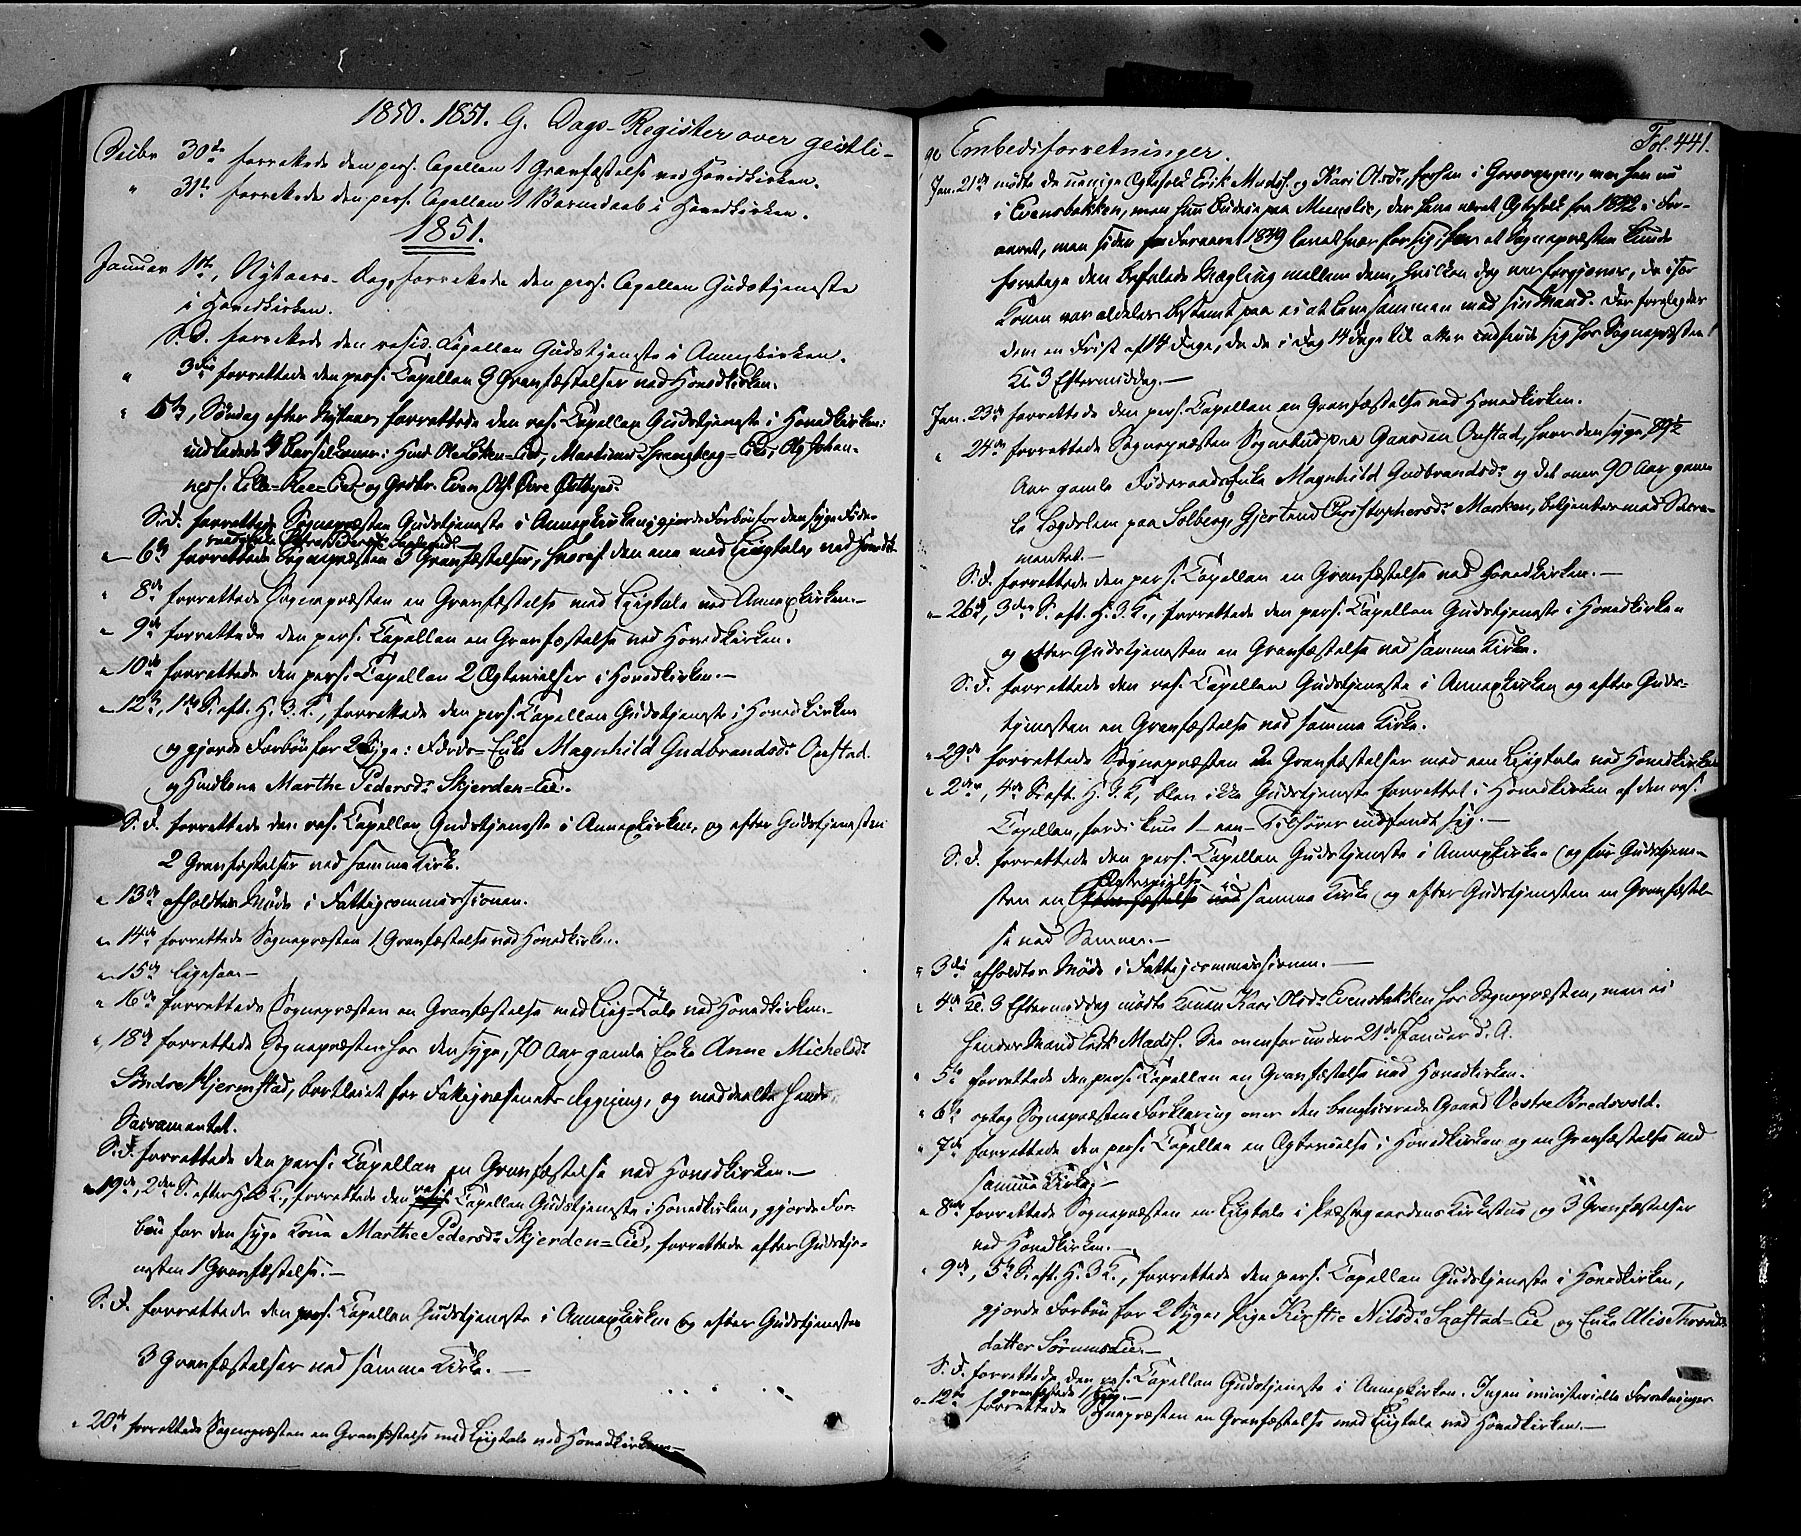 1850. 1851. G. Dags-Register over geistli-
Decbr 30te forrettede den pers. Capellan 1 Gravfæstelse ved Hovedkirken.
" 31te forrettede den pers. Capellan 1 Barnedaab i Hovedkirken.
1851.
Januar 1ste, Nytaars-Dag, forrettede den pers. Capellan Gudstjeneste
i Hovedkirken.
S. D. forrettede den resid. Capellan Gudstjeneste i Annexkirken.
" 3die forrettede den pers. Capellan 3 Gravfæstelser ved Hovedkirken.
" 5te, Søndag efter Nytaar, forrettede den res. Capellan Gudstjeneste i Hovedkirken;
indledede 4 Barselkoner: Hmd Ole Løken=Eie, Martinus Sprangberg=Eie, Ole Johan-
ness. Lille-Kee=Eie og Grdbr. Even Ols. Øvre Østbye.
S. D. forrettede Sognepræsten Gudstjeneste i Annexkirken, gjorde Forbøn for den syge Føde-
" 6te forrettede Sognepræsten 3 Gravfæstelser, hvoraf den ene med Liigtale, ved Hovedk.
" 8de forrettede Sognepræsten en Gravfæstelse med Liigtale ved Annexkirken.-
" 9de forrettede den pers. Capellan en Gravfæstelse ved Hovedkirken.
" 10de forrettede den pers. Capellan 2 Ægtevielser i Hovedkirken.-
" 12te, 1ste S. eft. H. 3 K., forrettede den pers. Capellan Gudstjeneste i Hovedkirken
og gjorde Forbøn for 2 Syge: Førds-Enke Magnhild Gudbrandsdr Onstad
og Hmdkone Marthe Pedersdr Skjerden=Eie.
S. D. forrettede den res. Capellan Gudstjeneste i Annexkirken, og efter Gudstjenesten
2 Gravfæstelser ved samme Kirke.
" 13de afholdtes Møde i Fattigcommissionen.
" 14de forrettede Sognepræsten 1 Gravfæstelse ved Hovedkirken.
" 15de ligesaa.-
" 16de forrettede Sognepræsten en Gravfæstelse med Liig-Tale ved Hovedkirken.
" 18de forrettede Sognepræsten hos den syge, 70 Aar gamle Enke Anne Michelsdr
Søndre Hjermstad, bortleiet for Fattigvæsenets Regning, og meddeelte hende
Sacramentet.
S. D. forrettede den pers. Capellan en Gravfæstelse ved Hovedkirken.-
" 19de, 2den S. efter H. 3 K., forrettede den resid. Capellan Gudstjeneste i Hovedkirken, gjorde For-
bøn for den syge Kone Marthe Pedersdr Skjerden=Eie, forrettede efter Gudstje-
nesten 1 Gravfæstelse.-
S. D. forrettede den pers. Capellan Gudstjeneste i Annexkirken og efter Gudstjenesten
3 Gravfæstelser ved samme Kirke.-
" 20de forrettede Sognepræsten en Gravfæstelse med Liigtale ved Hovedkirken.-
ge Embedsforretninger. Fol. 441.
Jan. 21de mødte de uenige Ægtefolk Erik Mads. og Kari Olsdr, han nu
i Evensbakken, men hun Budeie paa Munslie, der have været Ægtefolk fra 1842 i For-
aaret, men siden Foraaret 1849 levet hver for sig, for at Sognepræsten kunde
foretage den befalede Mægling mellem dem, hvilken dog var forgjæves, da især
Konen var aldeles bestemt paa ei at leve sammen med sin Mand. Der forelagdes
dem en Frist af 14 Dage, da de i Dag 14 Dage til atter indfinde sig hos Sognepræsten
Kl. 3 Eftermiddag.-
Jan. 23de forrettede den pers. Capellan en Gravfæstelse ved Hovedkirken.
" 24de forrettede Sognepræsten Sognebud paa Gaarden Onstad, hvor den syge, 89½
Aar gamle Føderaads-Enke Magnhild Gudbrandsdr og det over 90 Aar gam-
le Lægdslem paa Solberg, Gjertrud Christophersdr Marken, betjentes med Sacra-
mentet.-
S. D. forrettede den pers. Capellan en Gravfæstelse ved Hovedkirken.-
" 26de, 3die S. eft. H. 3 K., forrettede den pers. Capellan Gudstjeneste i Hovedkirken
og efter Gudstjenesten en Gravfæstelse ved samme Kirke.
S. D. forrettede den res. Capellan Gudstjeneste i Annexkirken og efter Guds-
tjenesten en Gravfæstelse ved samme Kirke.
" 29de forrettede Sognepræsten 2 Gravfæstelser med een Liigtale ved Hovedkirken
" 2den, 4de S. eft. H. 3 K., blev ikke Gudstjeneste forrettet i Hovedkirken af den res.
Capellan, fordi kun 1 - een - Tilhører indfandt sig.-
S. D. forrettede den pers. Capellan Gudstjeneste i Annexkirken (og før Gudstjene-
sten en Ægtevielse i samme Kirke) og efter Gudstjenesten en Gravfæstel-
se ved Samme.-
" 3die afholdtes Møde i Fattigcommissionen.-
" 4de Kl. 3 Eftermiddag mødte Konen Kari Olsdr Evensbakken hos Sognepræsten, men ei
hendes Mand Erik Mads. See ovenfor under 21de Januar d. A.
" 5te forrettede den pers. Capellan en Gravfæstelse ved Hovedkirken.
" 6te optog Sognepræsten Forklaring over den benificerede Gaard Vestre Bredsvold.
" 7de forrettede den pers. Capellan en Ægtevielse i Hovedkirken og en Gravfæstelse ved
samme Kirke.-
" 8de forrettede Sognepræsten en Liigtale i Præstegaardens Kirkestue og 3 Gravfæstelser
ved Hovedkirken.-
" 9de, 5te S. eft. H. 3 K., forrettede den pers. Capellan Gudstjeneste i Hovedkirken,
gjorde Forbøn for 2 Syge: Pige Kirstie Nilsdr Saxstad=Eie og Enke Alis Thrond-
datter Sørums Eie.-
S. D. forrettede den res. Capellan Gudstjeneste i Annexkirken. Ingen ministerielle Forretninger
" 12te forrettede Sognepræsten en Gravfæstelse med Liigtale ved Hovedkirken.-